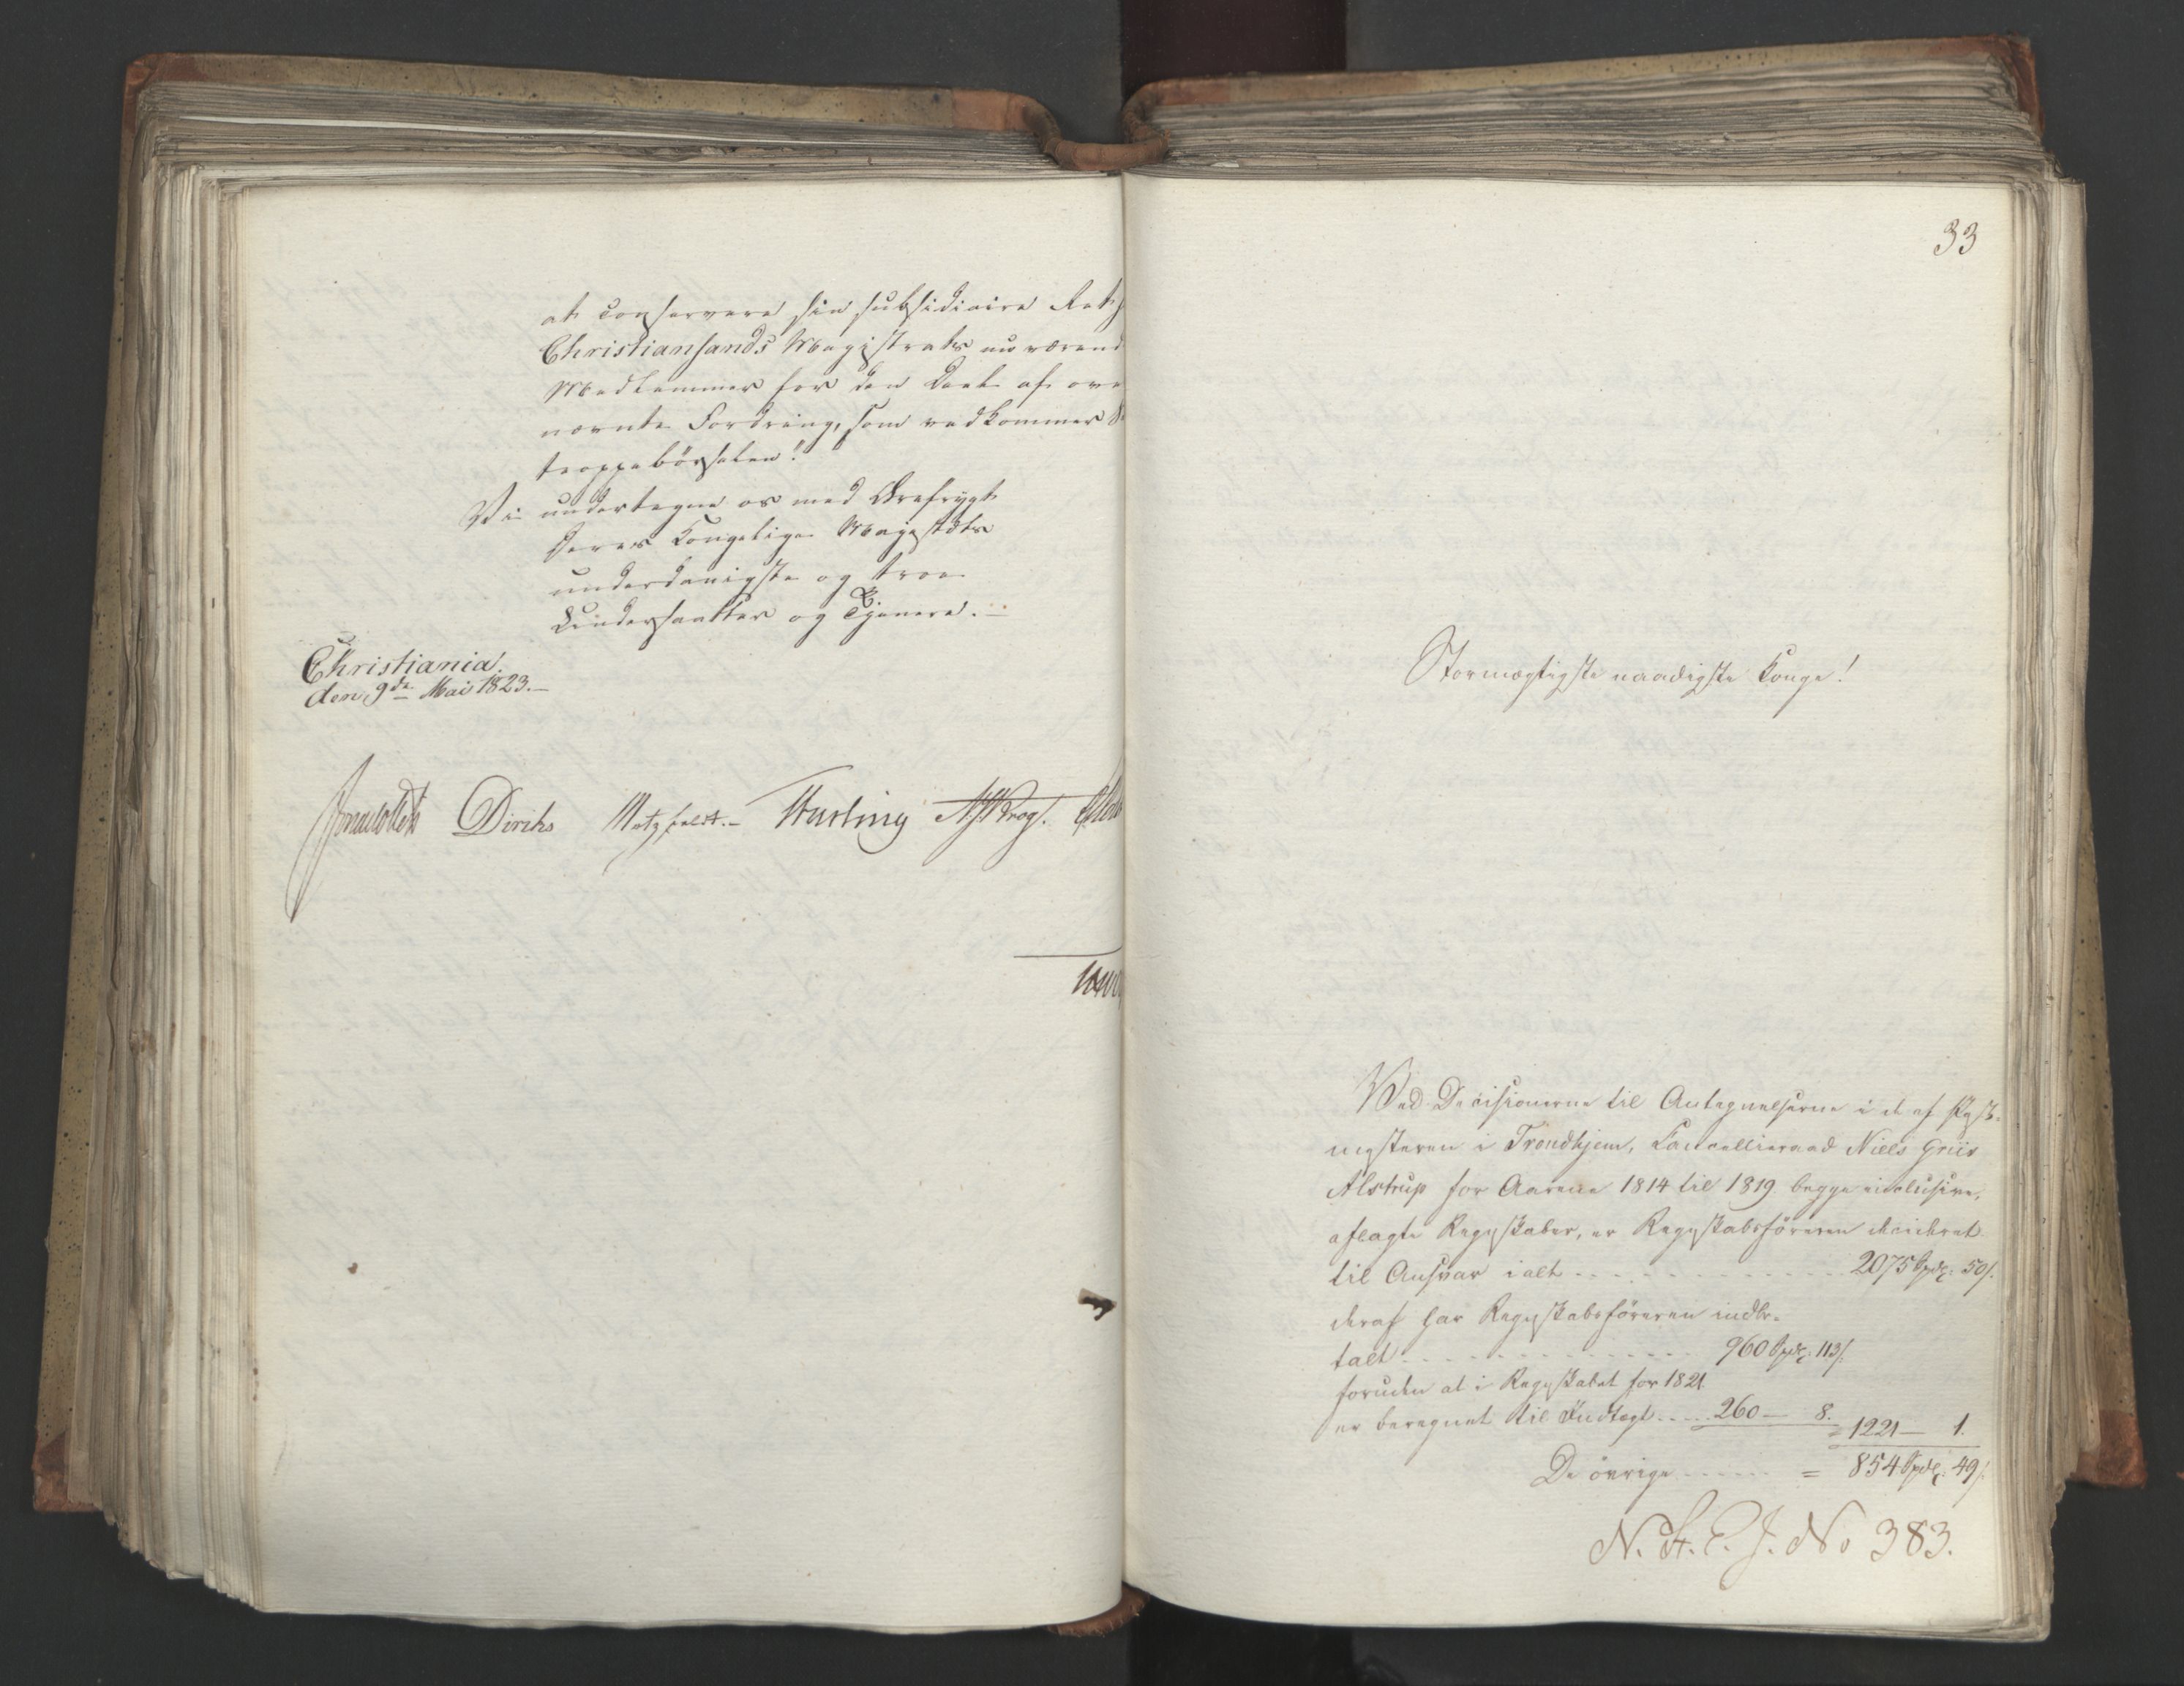 at conservere sin subsidiaire Ret
Christiansands Magistrats nu værend
Medlemmer for den Deel af ov
nævnte Fordring, som vedkommer
troppebösselen."
Vi undertegne os med Ærefrygt
Deres Kongelige Majestæts
underdanigste og troe
Undersaatter og Tjenere.
Christiania
den 9de Mai 1823.
Diriks Motzfeldt. Krog.
33
Stormægtigste naadigste Konge!
Ved Decisionerne til Antegnelserne i de af Post-
mesteren i Trondhjem, Cancellieraad Niels Griis
Alstrup for Aarene 1814 til 1819 begge inclusive,
aflagte Regnskaber, er Regnskabsföreren decideret
til Ansvar i alt 2075 Spdlr: 50/.
deraf har Regnskabsföreren indbe-
talt 960 Spdlr: 113/.
foruden at i Regnskabet for 1821
er beregnet til Indtægt 260 — 8.
1221 — 1.
De övrige = 854 Spdlr: 49/.
N. St. E. J. No 383.